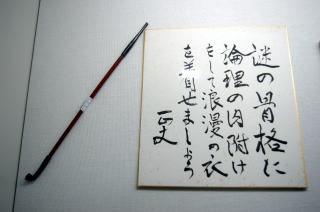 謎の骨格に
論理の肉附け
をして浪漫の衣
を着せましょう
正史